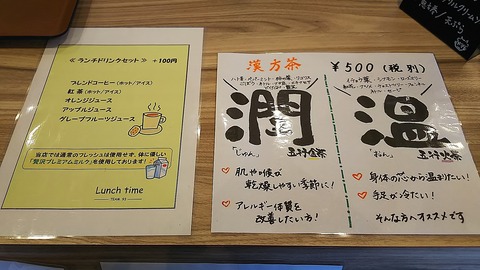 ≪ ランチドリンクセット ≫ +100円
ブレンドコーヒー (ホット/アイス)
紅茶 (ホット/アイス)
オレンジジュース
アップルジュース
グレープフルーツジュース
当店では通常のフレッシュは使用せず、体に優しい
「贅沢プレミアムミルク」を使用しております!
Lunch time
漢方茶 ¥500(税別)
潤
「じゅん」 五行金茶
♡ 肌や喉が
乾燥しやすい季節に!
♡ アレルギー体質を
改善したい方!
温
「おん」 五行火茶
♡ 身体の芯から温まりたい!
♡ 手足が冷たい!
そんな方へオススメです